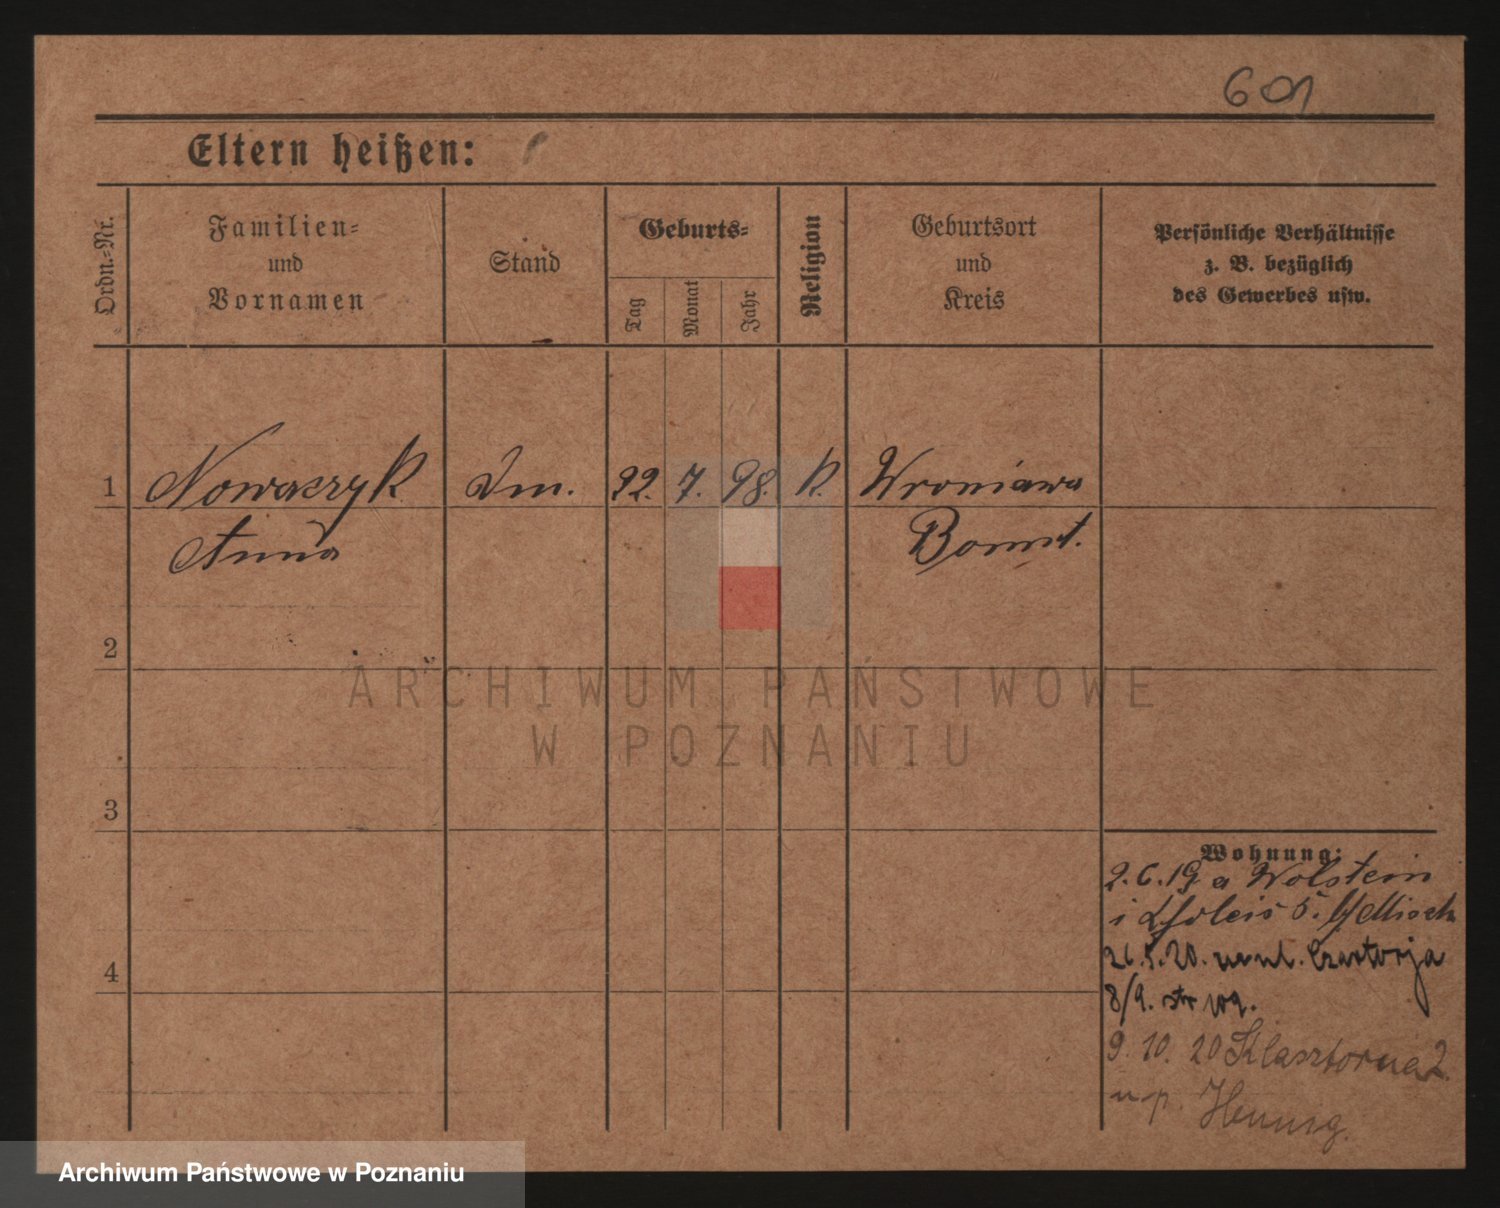 601
Eltern heißen:
Ordn.-Nr.
Familien-
und
Vornamen
Stand
Geburts-
Tag
Monat
Jahr
Religion
Geburtsort
und
Kreis
Persönliche Verhältnisse
z. B. bezüglich
des Gewerbes usw.
1 Nowaczyk Dm. 22. 7. 98. K. Wroniawa
Anna Bomst.
2
ARCHIWUM PAŃSTWOWE
W POZNANIU
3
Wohnung:
2.6.19 a Wolstein
i 5.
4
20. Czartorja
8/9.
9. 10. 20 Klasztorna 2.
u p. Hennig.
Archiwum Państwowe w Poznaniu